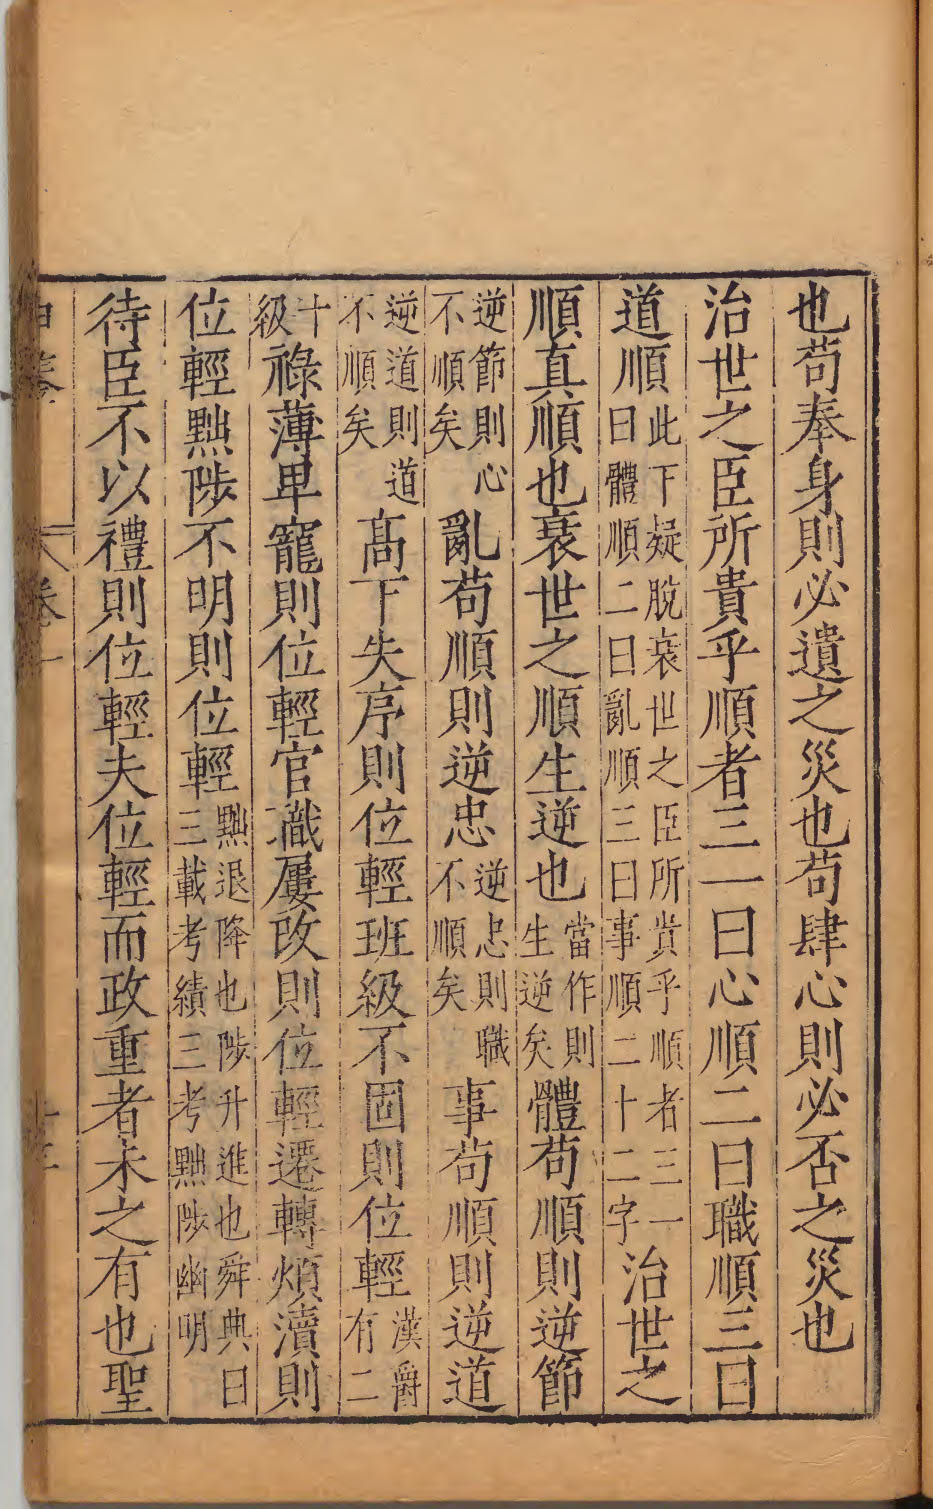 也苟奉身則必遺之災也苟肆心則必否之災也
治世之臣所貴乎順者三一曰心順二曰職順三曰
道順此下疑脫衰世之臣所貴乎順者三一曰體順二曰亂順三曰事順二十二字治世之
順真順也衰世之順生逆也當作則生逆矣體苟順則逆節
逆節則心不順矣亂苟順則逆忠逆忠則職不順矣事苟順則逆道
逆道則道不順矣髙下失序則位輕班級不固則位輕漢爵有二
十級祿薄卑寵則位輕官職屢改則位輕遷轉煩瀆則
位輕黜陟不明則位輕黜退降也陟升進也舜典曰三載考績三考黜陟幽明
待臣不以禮則位輕夫位輕而政重者未之有也聖